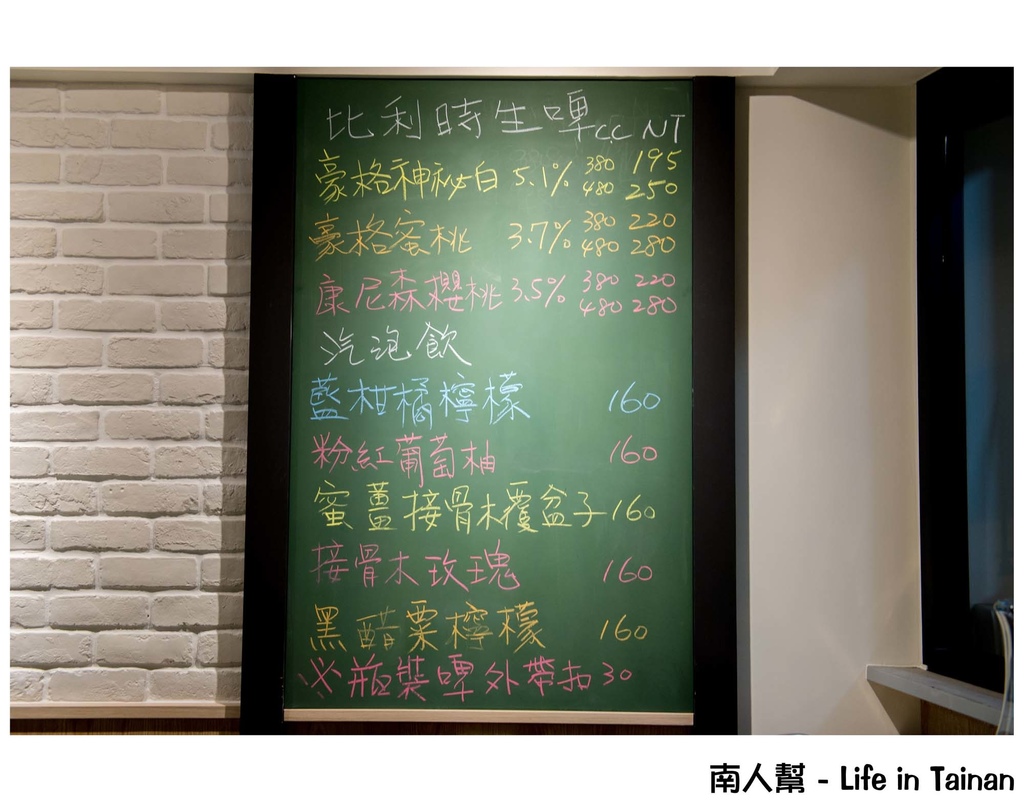 比利時生啤 c.c NT
豪格神秘白 5.1% 380 195
480 250
豪格蜜桃 3.7% 380 220
480 280
康尼森櫻桃 3.5% 380 220
480 280
汽泡飲
藍柑橘檸檬 160
粉紅葡萄柚 160
蜜薑接骨木覆盆子 160
接骨木玫瑰 160
黑醋粟檸檬 160
※瓶裝啤外帶扣30
南人幫 - Life in Tainan